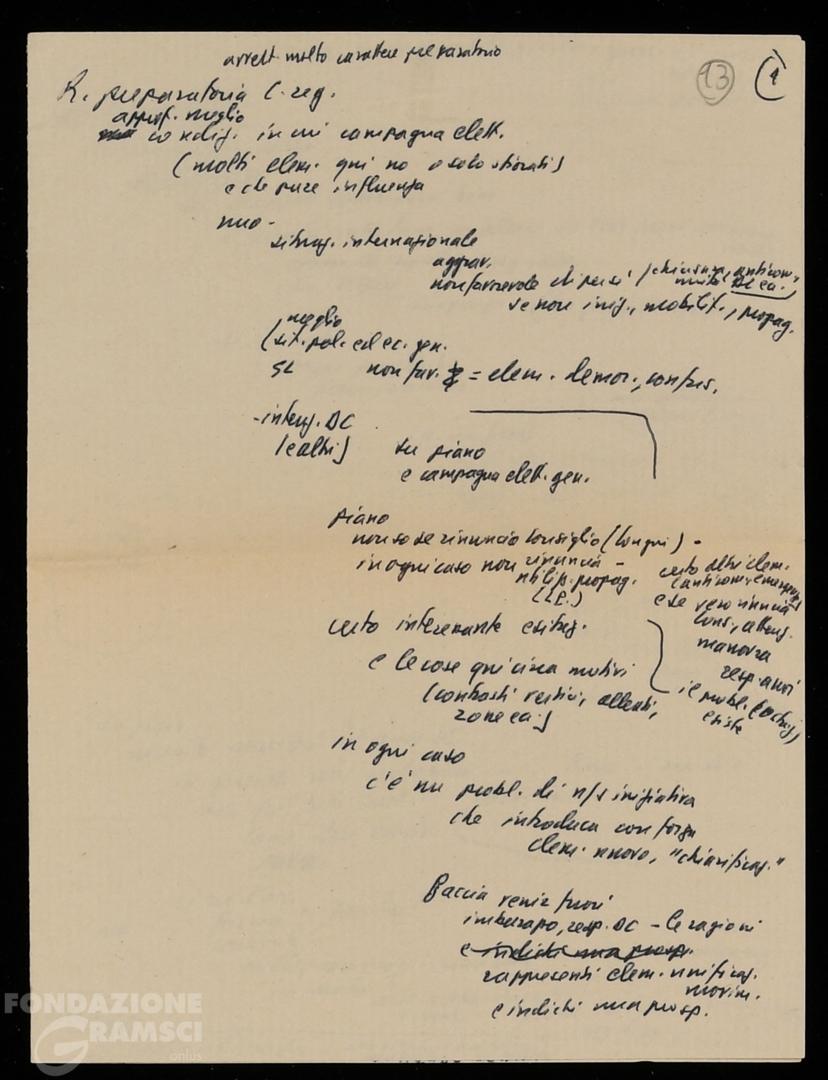 avvert. molto carattere preparatorio
13
1
R. preparatoria C. reg.
approf. meglio
condiz. in cui campagna elett.
(molti elem. qui no o solo sfiorati)
e che pure influenza
situaz. internazionale
aggrav.
non favorevole di per sé (chiusura, anticom.,
unità DC ecc.)
se non iniz., mobilit., propag.
meglio
(sit. pol. ed ec. gen.
non fav. = elem. demor., confus.
- intenz. DC
(e altri) su piano
e campagna elett. gen.
piano
non so se rinuncia Consiglio (                 ) -
in ogni caso non rinuncia -
utiliz. propag.
certo altri elem.
e se vero rinuncia
cons., atteng.
manovra
resp. anni
certo interessante esitaz.
e le cose qui circa motivi
(contrasti vertici, alleati,
zone ecc.)
esiste
in ogni caso
c'è un probl. di n/s iniziativa
che introduca con forza
elem. nuovo, "chiarificaz."
Faccia venir fuori
imbarazzo, resp. DC - le ragioni
e indichi una prosp.
rappresenti elem. unificaz.
movim.
e indichi una prosp.
FONDAZIONE
GRAMSCI
onlus